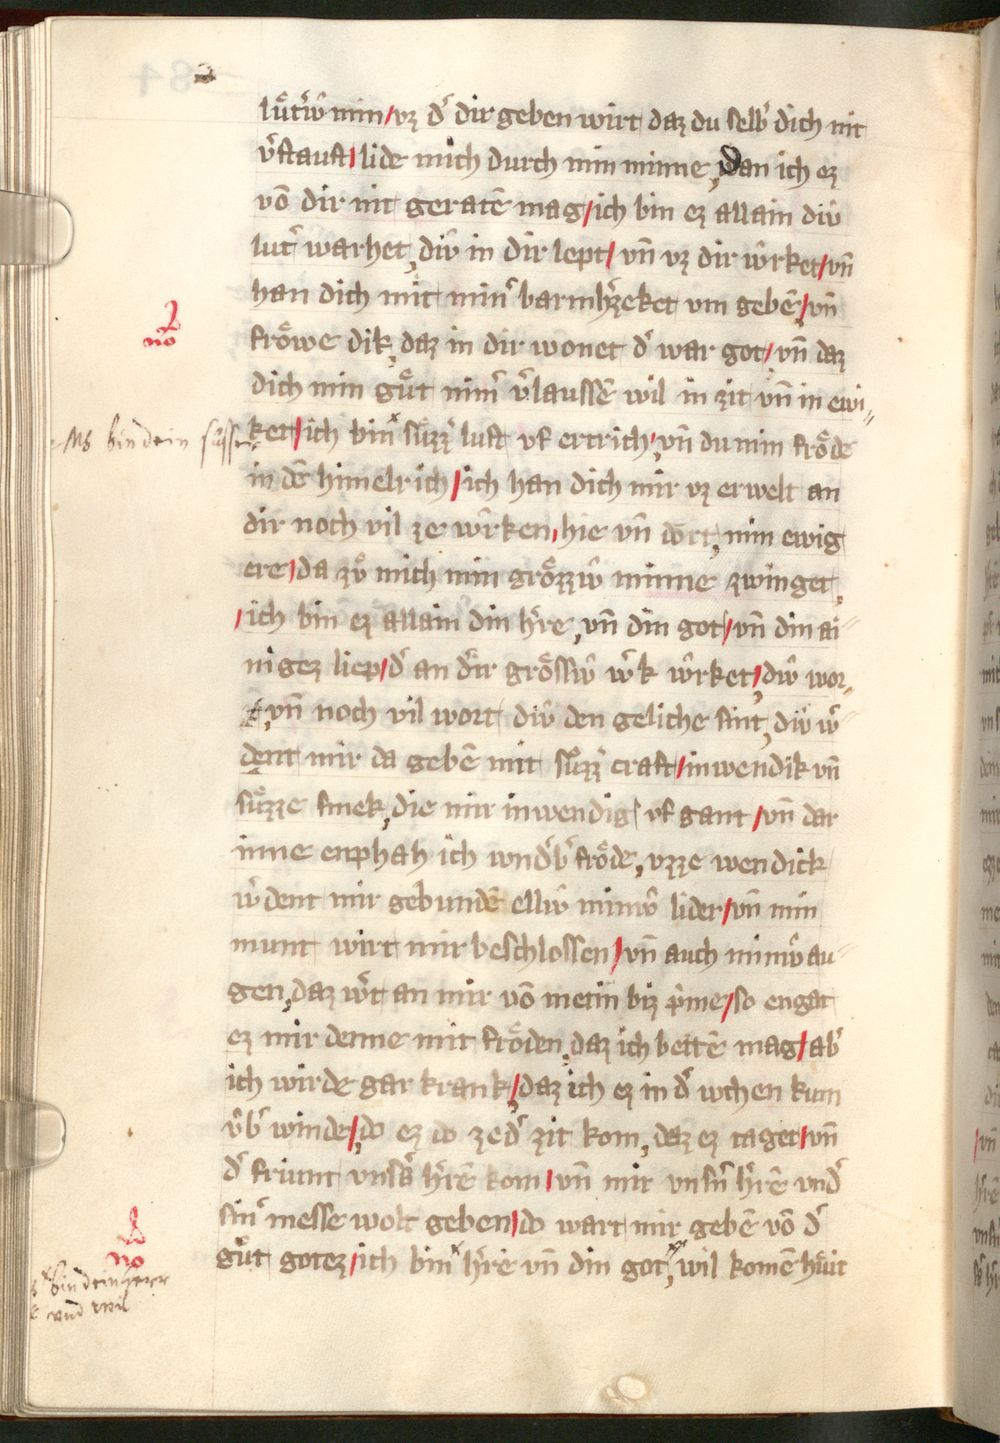 lu̇tͤrw̑ min / vz dˀ dir geben wirt daz du selbˀ dich nit
vˀstaust / lide mich durch min minne, Dan ich ez
vō dir nit geratē mag / ich bin ez allain diw̑
lutˀ warhet, diw̑ in dir lept / vn̄ vz dir wu̇rket / vn̄
han dich mit minˀ barmhˀzeket vm gebē, / vn̄
froͤwe dik, daz in dir wonet dˀ war got / vn̄ daz
dich min guͤt nimˀ vˀlaussē wil in zit vn̄ in ewi=
ket / ich bin x suͤzzˀ lust vf ertrich / vn̄ du min froͤde
in dē himelrich / ich han dich mir vz erwelt an
dir noch vil ze wu̇rken / hie vn̄ dort, min ewig
ere / da zuͦ mich min groͤzzw̑ minne zwinget,
/ ich bin ez allain din hˀre, vn̄ din got / vn̄ din ai-
nigez liep / dˀ an dir groͤssw̑ wˀk wu̇rket / diw̑ wor-
t, vn̄ noch vil wort diw̑ den geliche sint, diw̑ wˀ=
dent mir da gebē mit suͤzzˀ craft / inwendik vn̄
suͤzze smek, die mir inwendig vf gant / vn̄ dar
inne enphah ich wndˀbˀ froͤde, vzze wendick
wˀdent mir gebundē ellw̑ minw̑ lider / vn̄ min
munt wirt mir beschlossen / vn̄ auch minw̑ au=
gen, daz wˀt an mir vō metin biz pˀme / so engat
ez mir denne mit froͤden, daz ich bettē mag / abˀ
ich wirde gar krank, / daz ich ez in dˀ wchen kum
v̇bˀ winde, / do ez do ze dˀ zit kom, daz ez taget / vn̄
dˀ friunt vnsˀs hˀrē kom / vn̄ mir vnsˀn hˀrē vndˀ
sinˀ messe wolt geben / do wart mir gebē vō dˀ
guͤt gotez / ich bin x hˀre vn̄ din got, x wil komē hiut
no
bin dein süsser
no
x bin dein herr
vnd wil